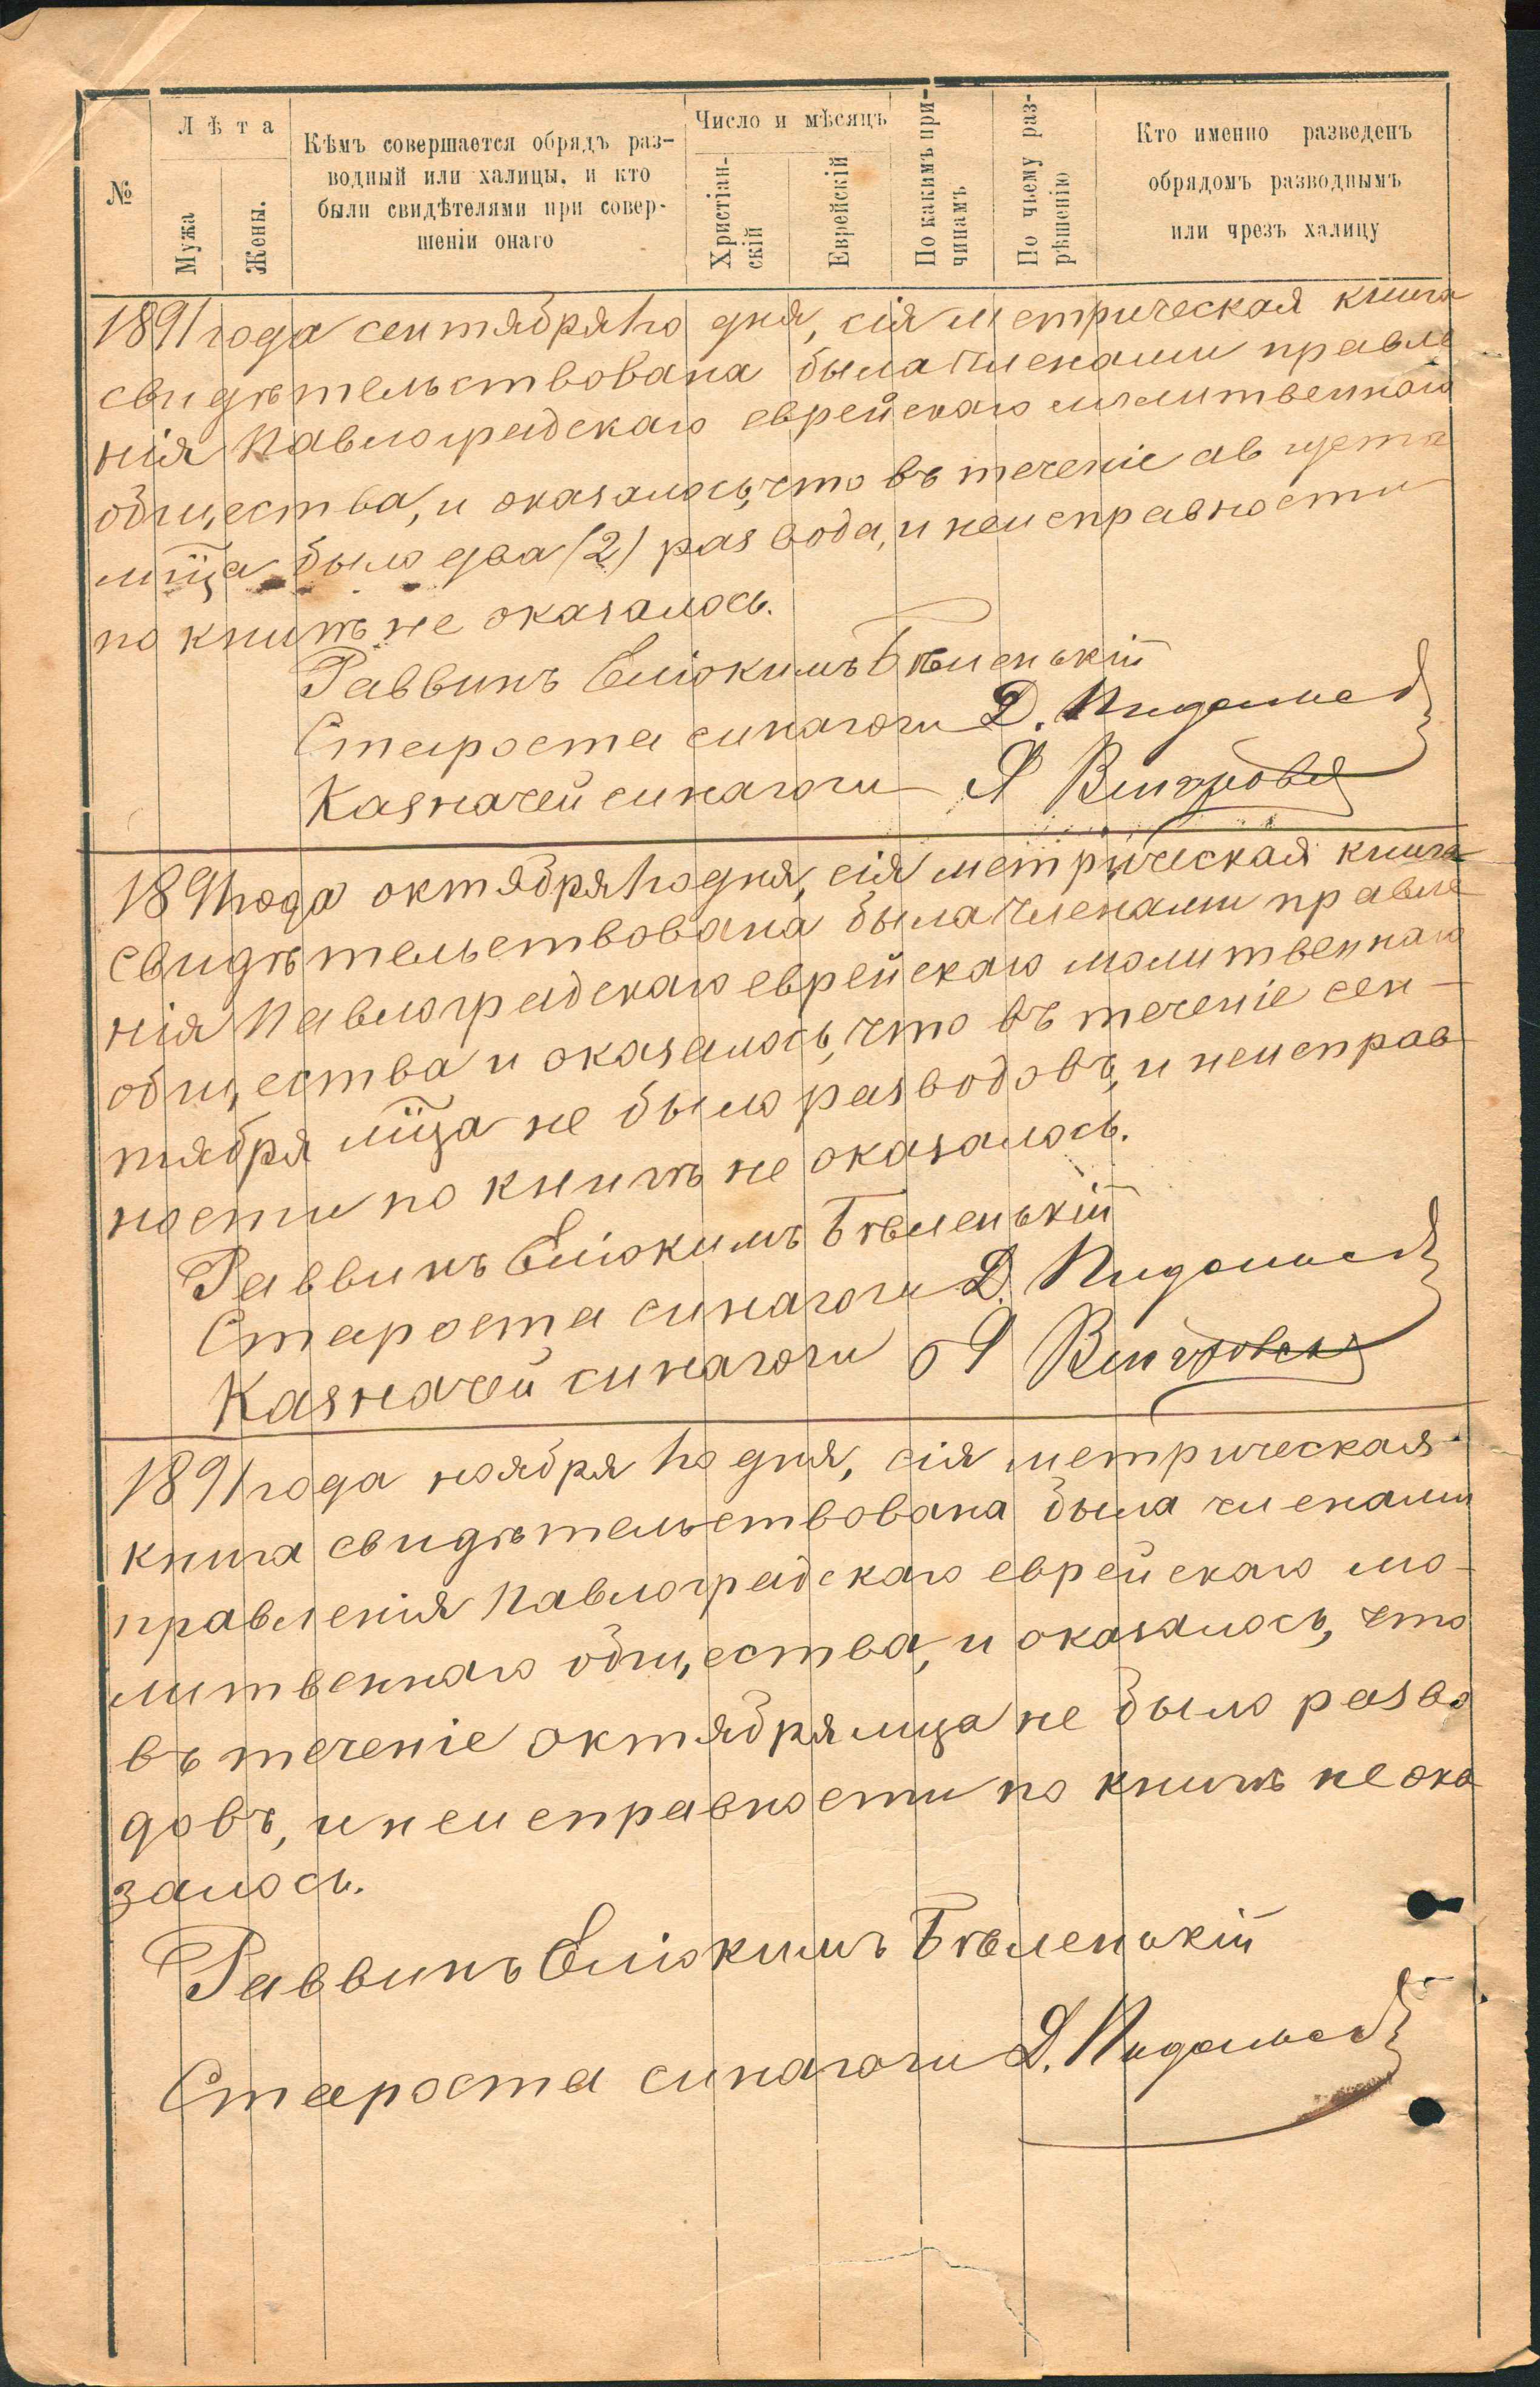 №
Лѣта
Мужа
Жены.
Кѣмъ совершается обрядъ раз-
водный или халицы, и кто
были свидѣтелями при совер-
шеніи онаго
Число и мѣсяцъ
Христіан-
скій
Еврейскій
По какимъ при-
чинамъ
По чьему раз-
рѣшенію
Кто именно разведенъ
обрядомъ разводнымъ
или чрезъ халицу
1891 года сентября 1го дня, сія метрическая книга
свидѣтельствована была членами правле
нія Павлоградскаго еврейскаго молитвеннаго
общества, и оказалось, что въ теченіе августа
мца было два (2) развода, и неисправности
по книгѣ не оказалось.
Раввинъ Еліокимъ Бѣленькій
Староста синагоги Д.
Казначей синагоги
1891 года октября 1го дня, сія метрическая книга
свидѣтельствована была членами правле
нія Павлоградскаго еврейскаго молитвеннаго
общества и оказалось, что въ теченіе сен-
тября мца не было разводовъ, и неисправ
ности по книгѣ не оказалось.
Раввинъ Еліокимъ Бѣленькій
Староста синагоги Д.
Казначей синагоги
1891 года ноября 1го дня, сія метрическая
книга свидѣтельствована была членами
правленія Павлоградскаго еврейскаго мо-
литвеннаго общества, и оказалось, что
въ теченіе октября мца не было разво
довъ, и неисправности по книгѣ не ока
залось.
Раввинъ Еліокимъ Бѣленькій
Староста синагоги Д.